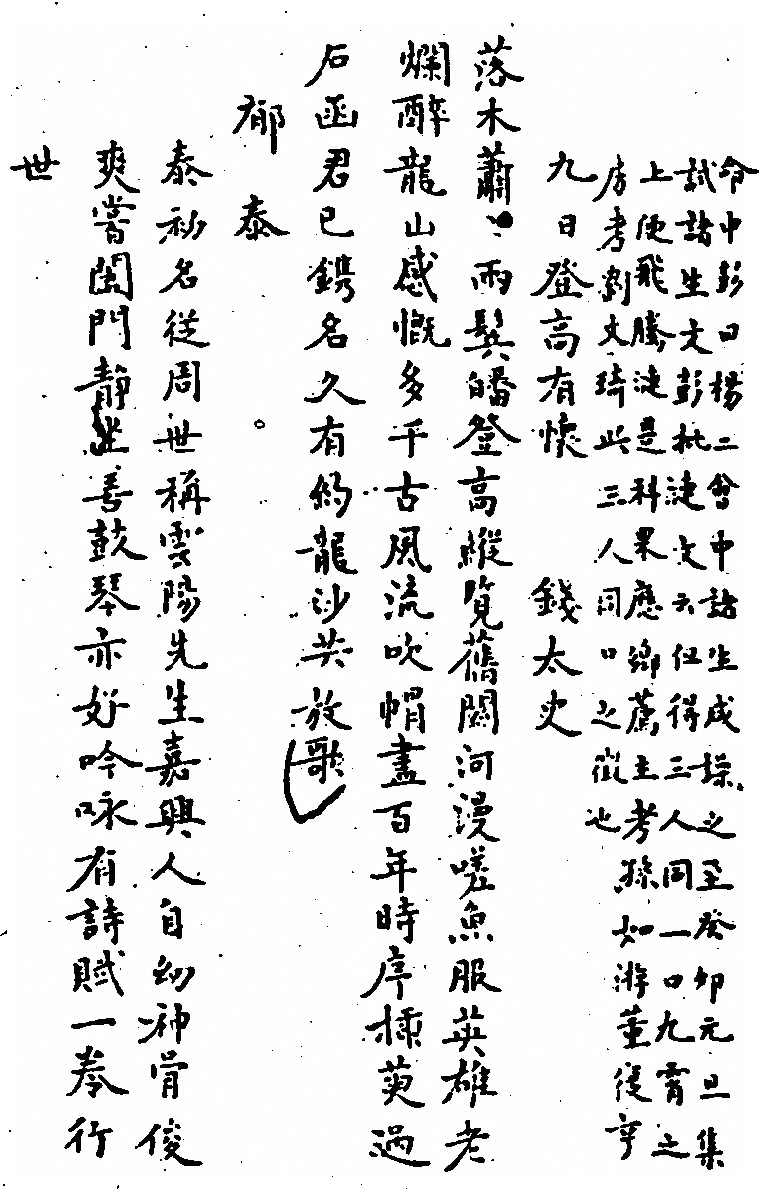 命中彭曰楊二會中諸生成操之至癸卯元旦集
試諸生文彭批浹文云仅得三人同一口九霄之
上便飛騰浹是科果應鄉薦主考孫如游董復亨
房考劉文琦此三人同口之徵也
九日登高有懷 錢太史
落木蕭〻兩鬂皤登高縱覽舊關河漫嗟魚服英雄老
爛醉龍山感慨多千古風流吹帽盡百年時序插萸過
石函君已鐫名久有約龍沙共放歌
郁泰
泰初名從周世稱雲陽先生嘉興人自幼神骨俊
爽嘗閉門靜坐善鼓琴亦好吟咏有詩賦一奉行
世